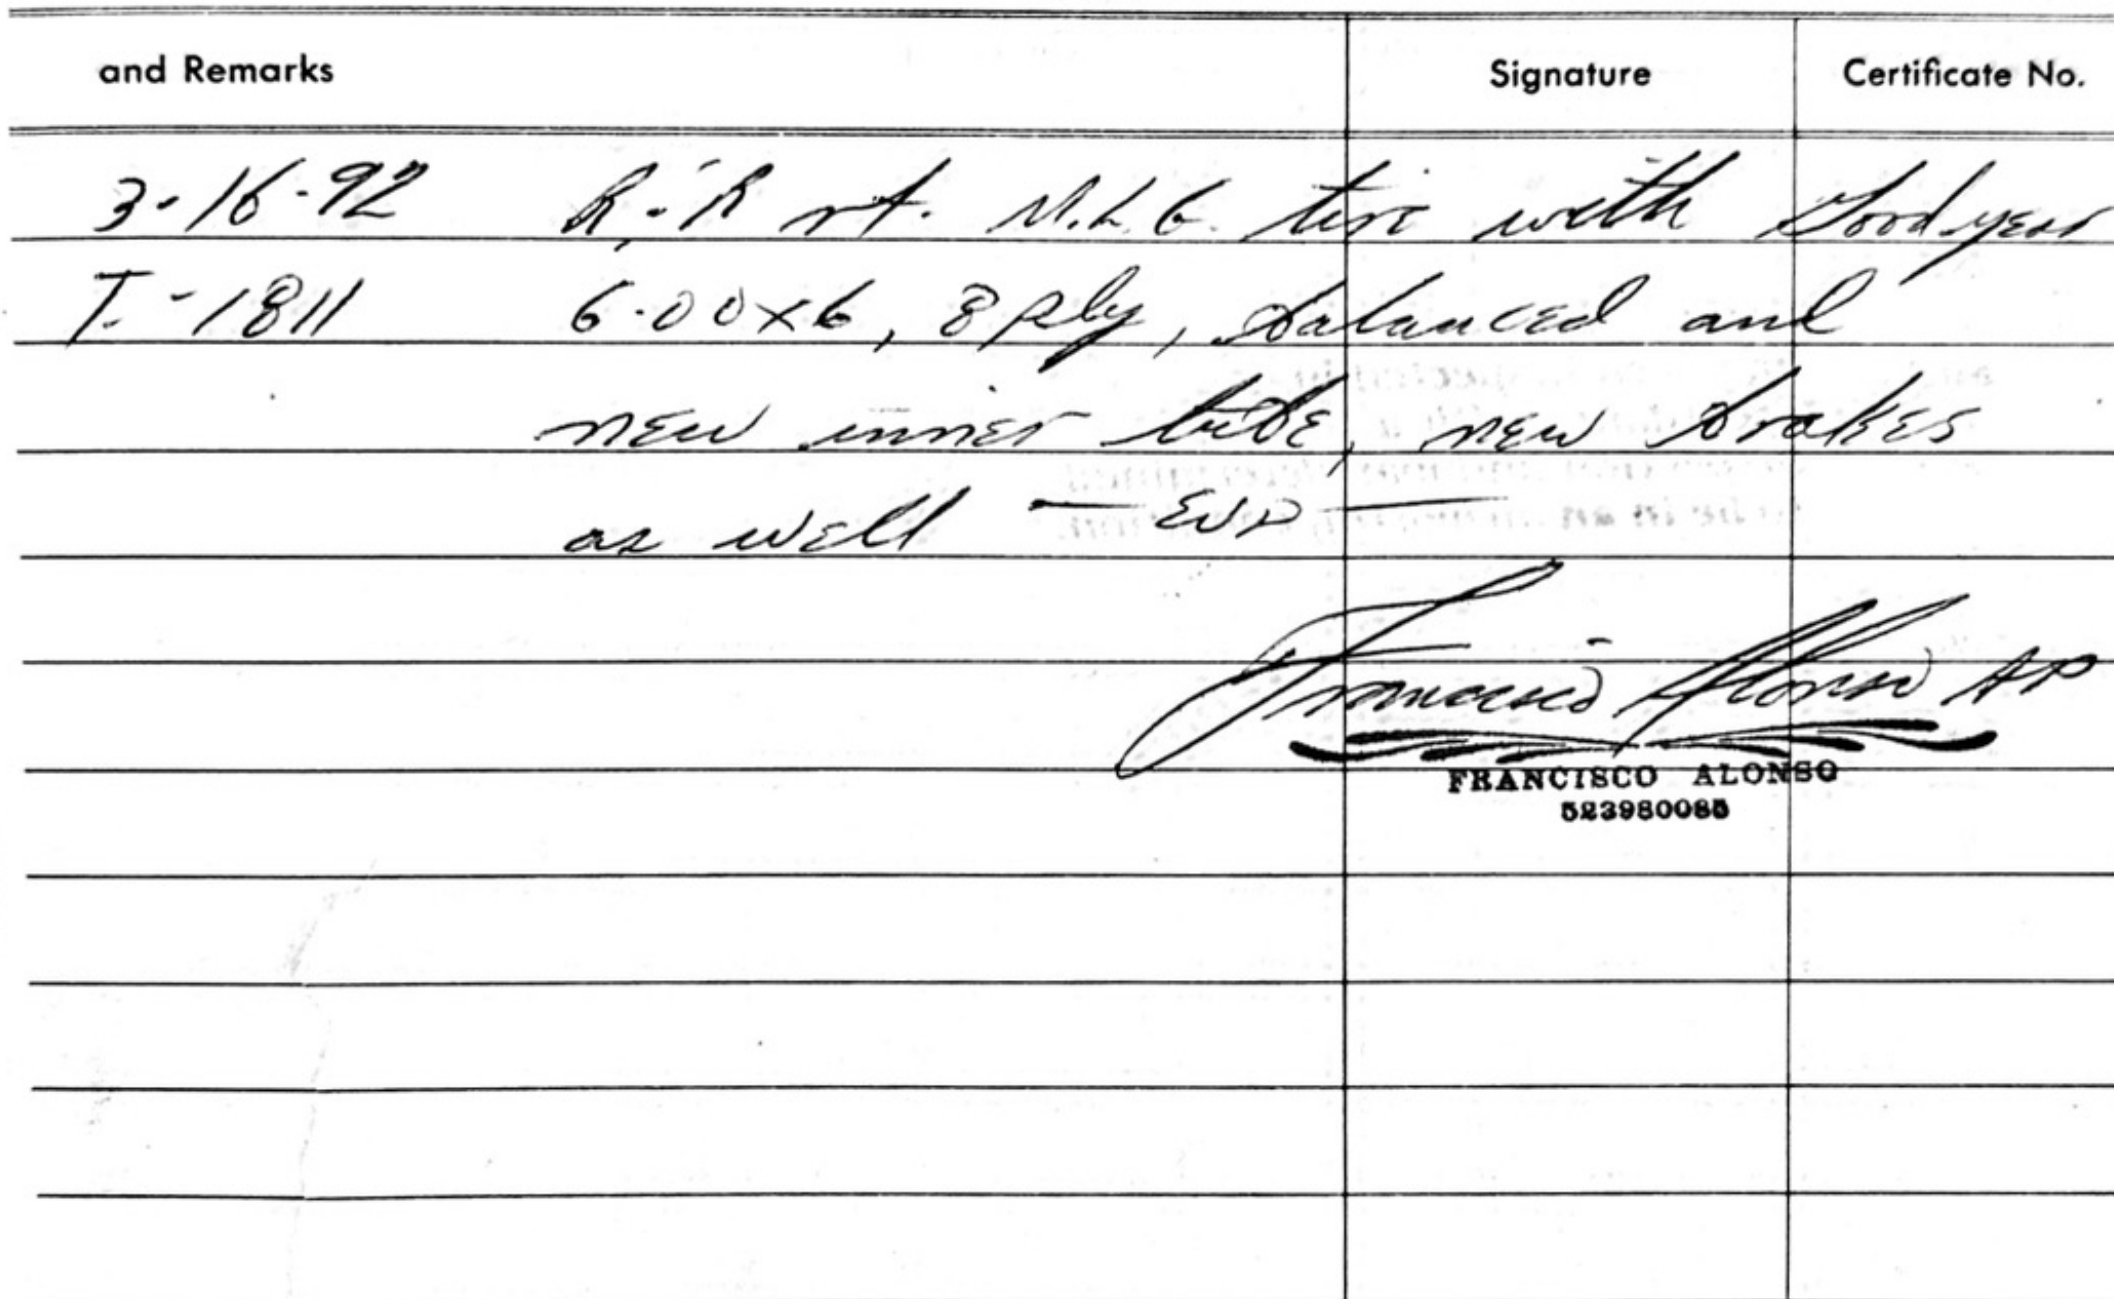 and Remarks Signature Certificate No.
3-16-92 R-R rt. M.L.G. tire with Goodyear
T-1811 6.00x6, 8 ply, balanced and
new inner tube, new brakes
as well — END —
Francisco Alonso AP
FRANCISCO ALONSO
523980085